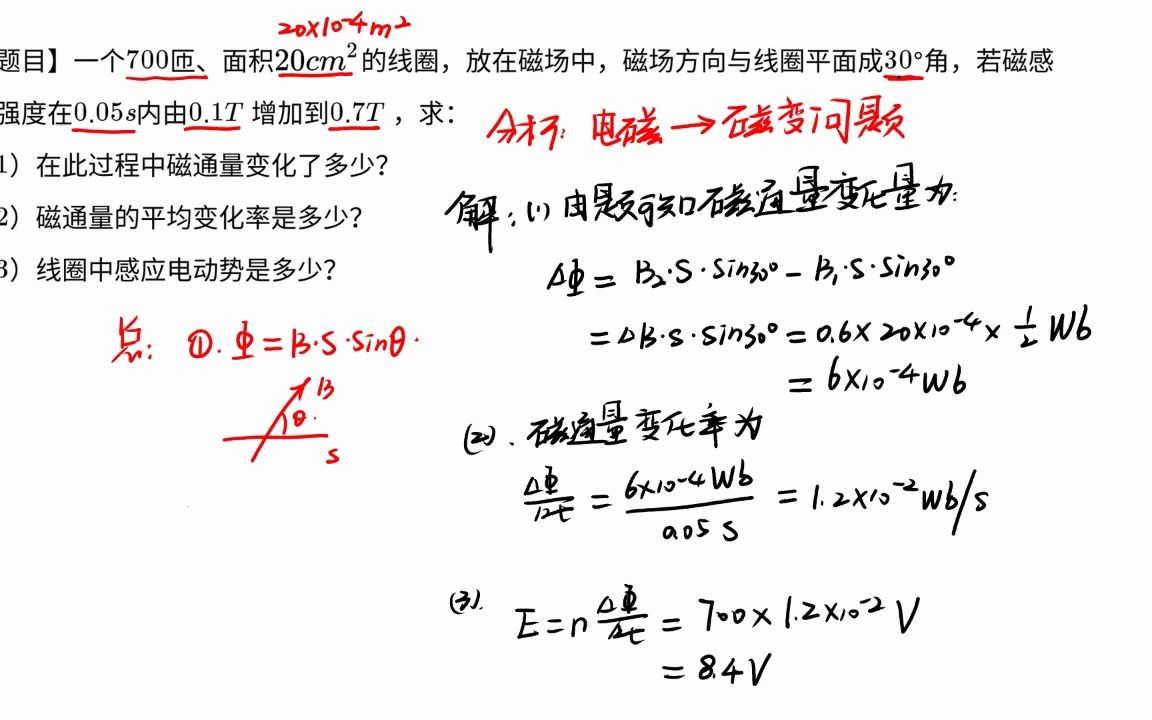 20×10⁻⁴m²
题目】一个700匝、面积20cm²的线圈，放在磁场中，磁场方向与线圈平面成30°角，若磁感
强度在0.05s内由0.1T 增加到0.7T ，求：
分析：电磁→磁变问题
1）在此过程中磁通量变化了多少？
2）磁通量的平均变化率是多少？
3）线圈中感应电动势是多少？
解：(1) 由题可知磁通量变化量为：
ΔΦ = B₂·S·sin30° − B₁·S·sin30°
= ΔB·S·sin30° = 0.6×20×10⁻⁴×1/2 Wb
= 6×10⁻⁴Wb
①. Φ=B·S·sinθ.
B
θ.
S
(2). 磁通量变化率为
ΔΦ/Δt = 6×10⁻⁴Wb/0.05 S = 1.2×10⁻²Wb/s
(3).
E=n ΔΦ/Δt = 700×1.2×10⁻² V
= 8.4V